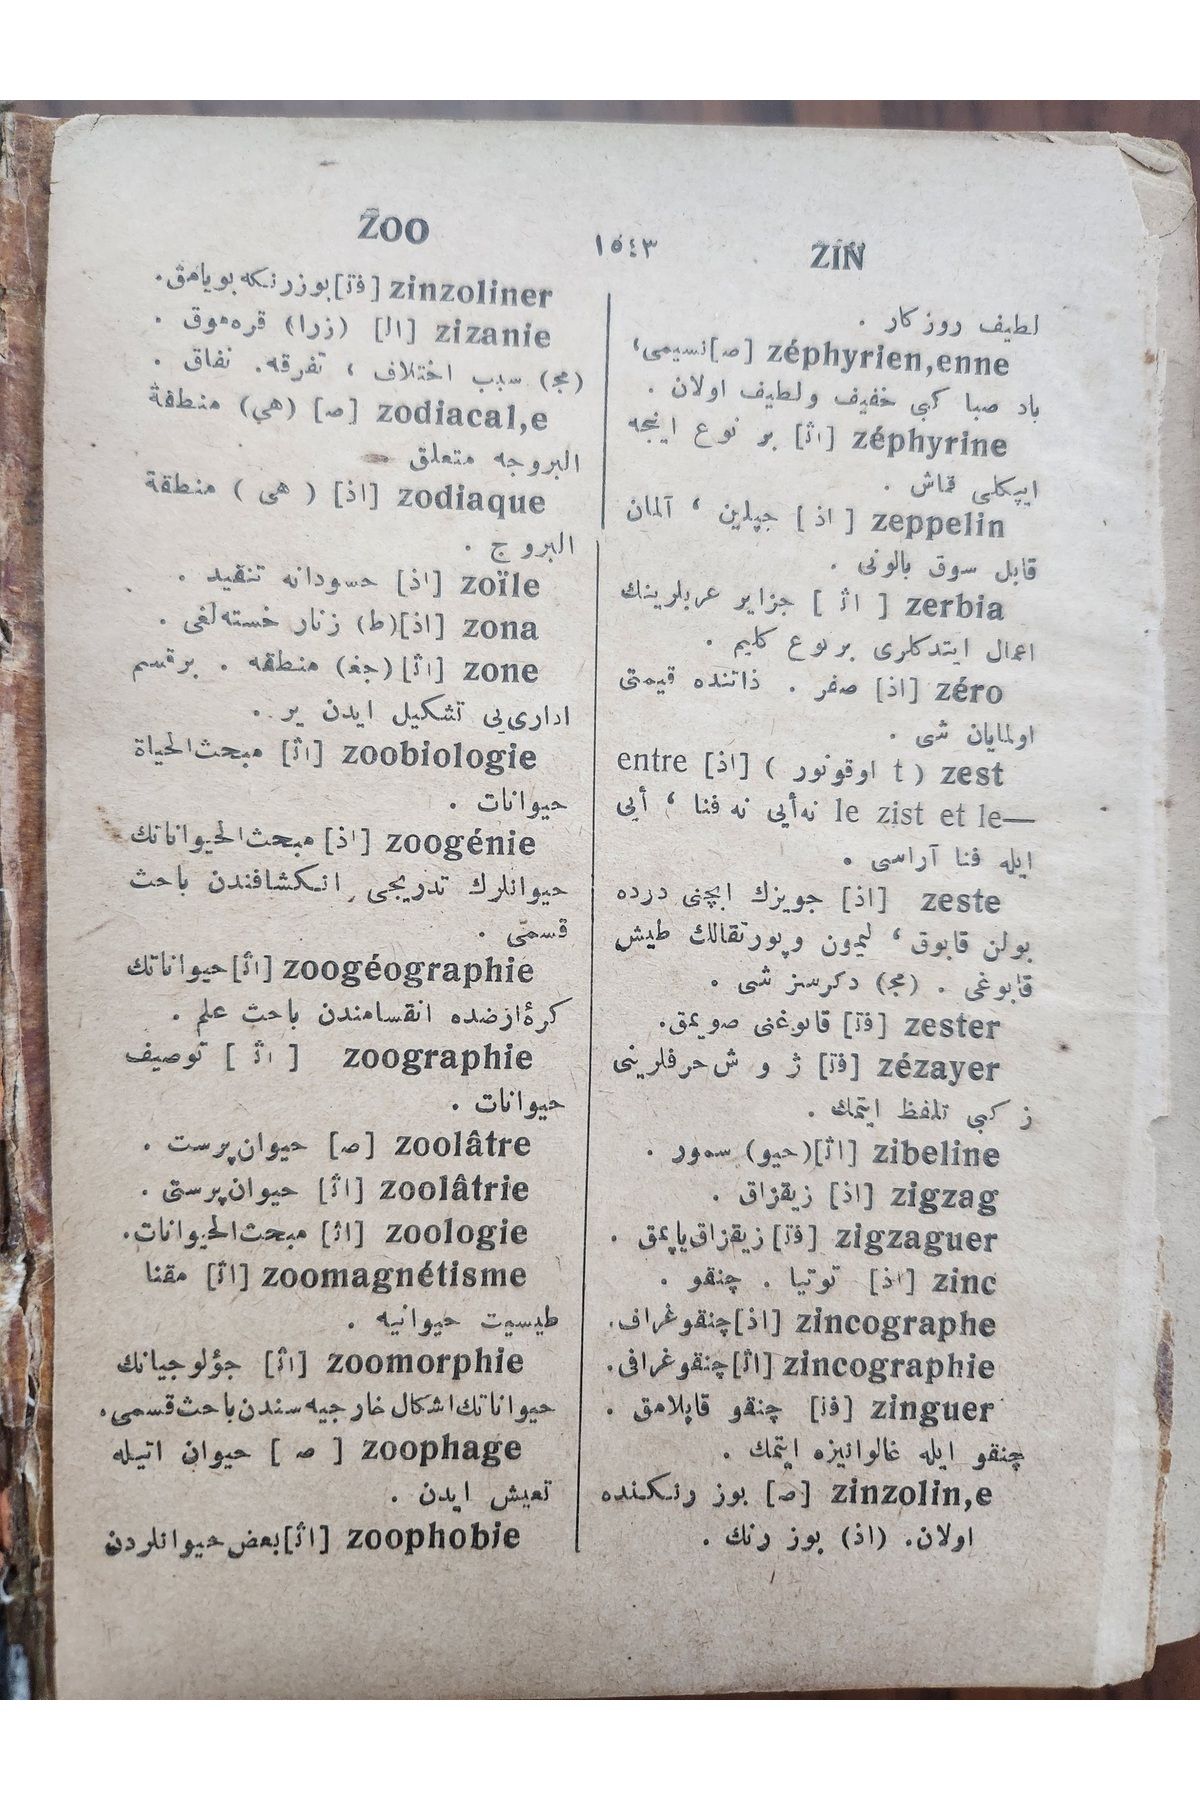 ZIN
١٥٤٣
ZOO
لطيف روزكار .
zéphyrien,enne [ص] نسيمى،
باد صبا كبى خفيف ولطيف اولان .
zéphyrine [اث] بر نوع اينجه
ايپكلى قماش .
zeppelin [اذ] جپلين ، آلمان
قابل سوق بالونى .
zerbia [اث] جزاير عربلرينك
اعمال ايتدكلرى برنوع كليم .
zéro [اذ] صفر . ذاتنده قيمتى
اولمايان شى .
zest (t اوقونور) [اذ] entre
le zist et le— نه أيى نه فنا ، أيى
ايله فنا آراسى .
zeste [اذ] جويزك ايچنى درده
بولن قابوق ، ليمون وپورتقالك طيش
قابوغى . (مج) دكرسز شى .
zester [فت] قابوغنى صويمق.
zézayer [فت] ژ و ش حرفلرينى
ز كبى تلفظ ايتمك .
zibeline [اث] (حيو) سمور .
zigzag [اذ] زيقزاق .
zigzaguer [فت] زيقزاق ياپمق .
zinc [اذ] توتيا . چنقو .
zincographe [اذ] چنقوغراف.
zincographie [اث] چنقوغرافى.
zinguer [فت] چنقو قاپلامق .
چنقو ايله غالوانيزه ايتمك .
zinzolin,e [ص] بوز رنكنده
اولان. (اذ) بوز رنك .
zinzoliner [فت] بوز رنكه بويامق.
zizanie [اث] (زرا) قره موق .
(مج) سبب اختلاف ، تفرقه. نفاق .
zodiacal,e [ص] (هى) منطقة
البروجه متعلق
zodiaque [اذ] (هى) منطقة
البروج .
zoïle [اذ] حسودانه تنقيد .
zona [اذ] (ط) زنار خسته لغى .
zone [اث] (جغ) منطقه . برقسم
ادارى يى تشكيل ايدن ير .
zoobiologie [اث] مبحث الحياة
حيوانات .
zoogénie [اذ] مبحث الحيواناتك
حيوانلرك تدريجى انكشافندن باحث
قسمى .
zoogéographie [اث] حيواناتك
كرۀ ارضده انقسامندن باحث علم .
zoographie [اث] توصيف
حيوانات .
zoolâtre [ص] حيوان پرست .
zoolâtrie [اث] حيوان پرستى .
zoologie [اث] مبحث الحيوانات.
zoomagnétisme [اث] مقنا
طيسيت حيوانيه .
zoomorphie [اث] جؤلوجيانك
حيواناتك اشكال خارجيه سندن باحث قسمى.
zoophage [ص] حيوان اتيله
تعيش ايدن .
zoophobie [اث] بعض حيوانلردن